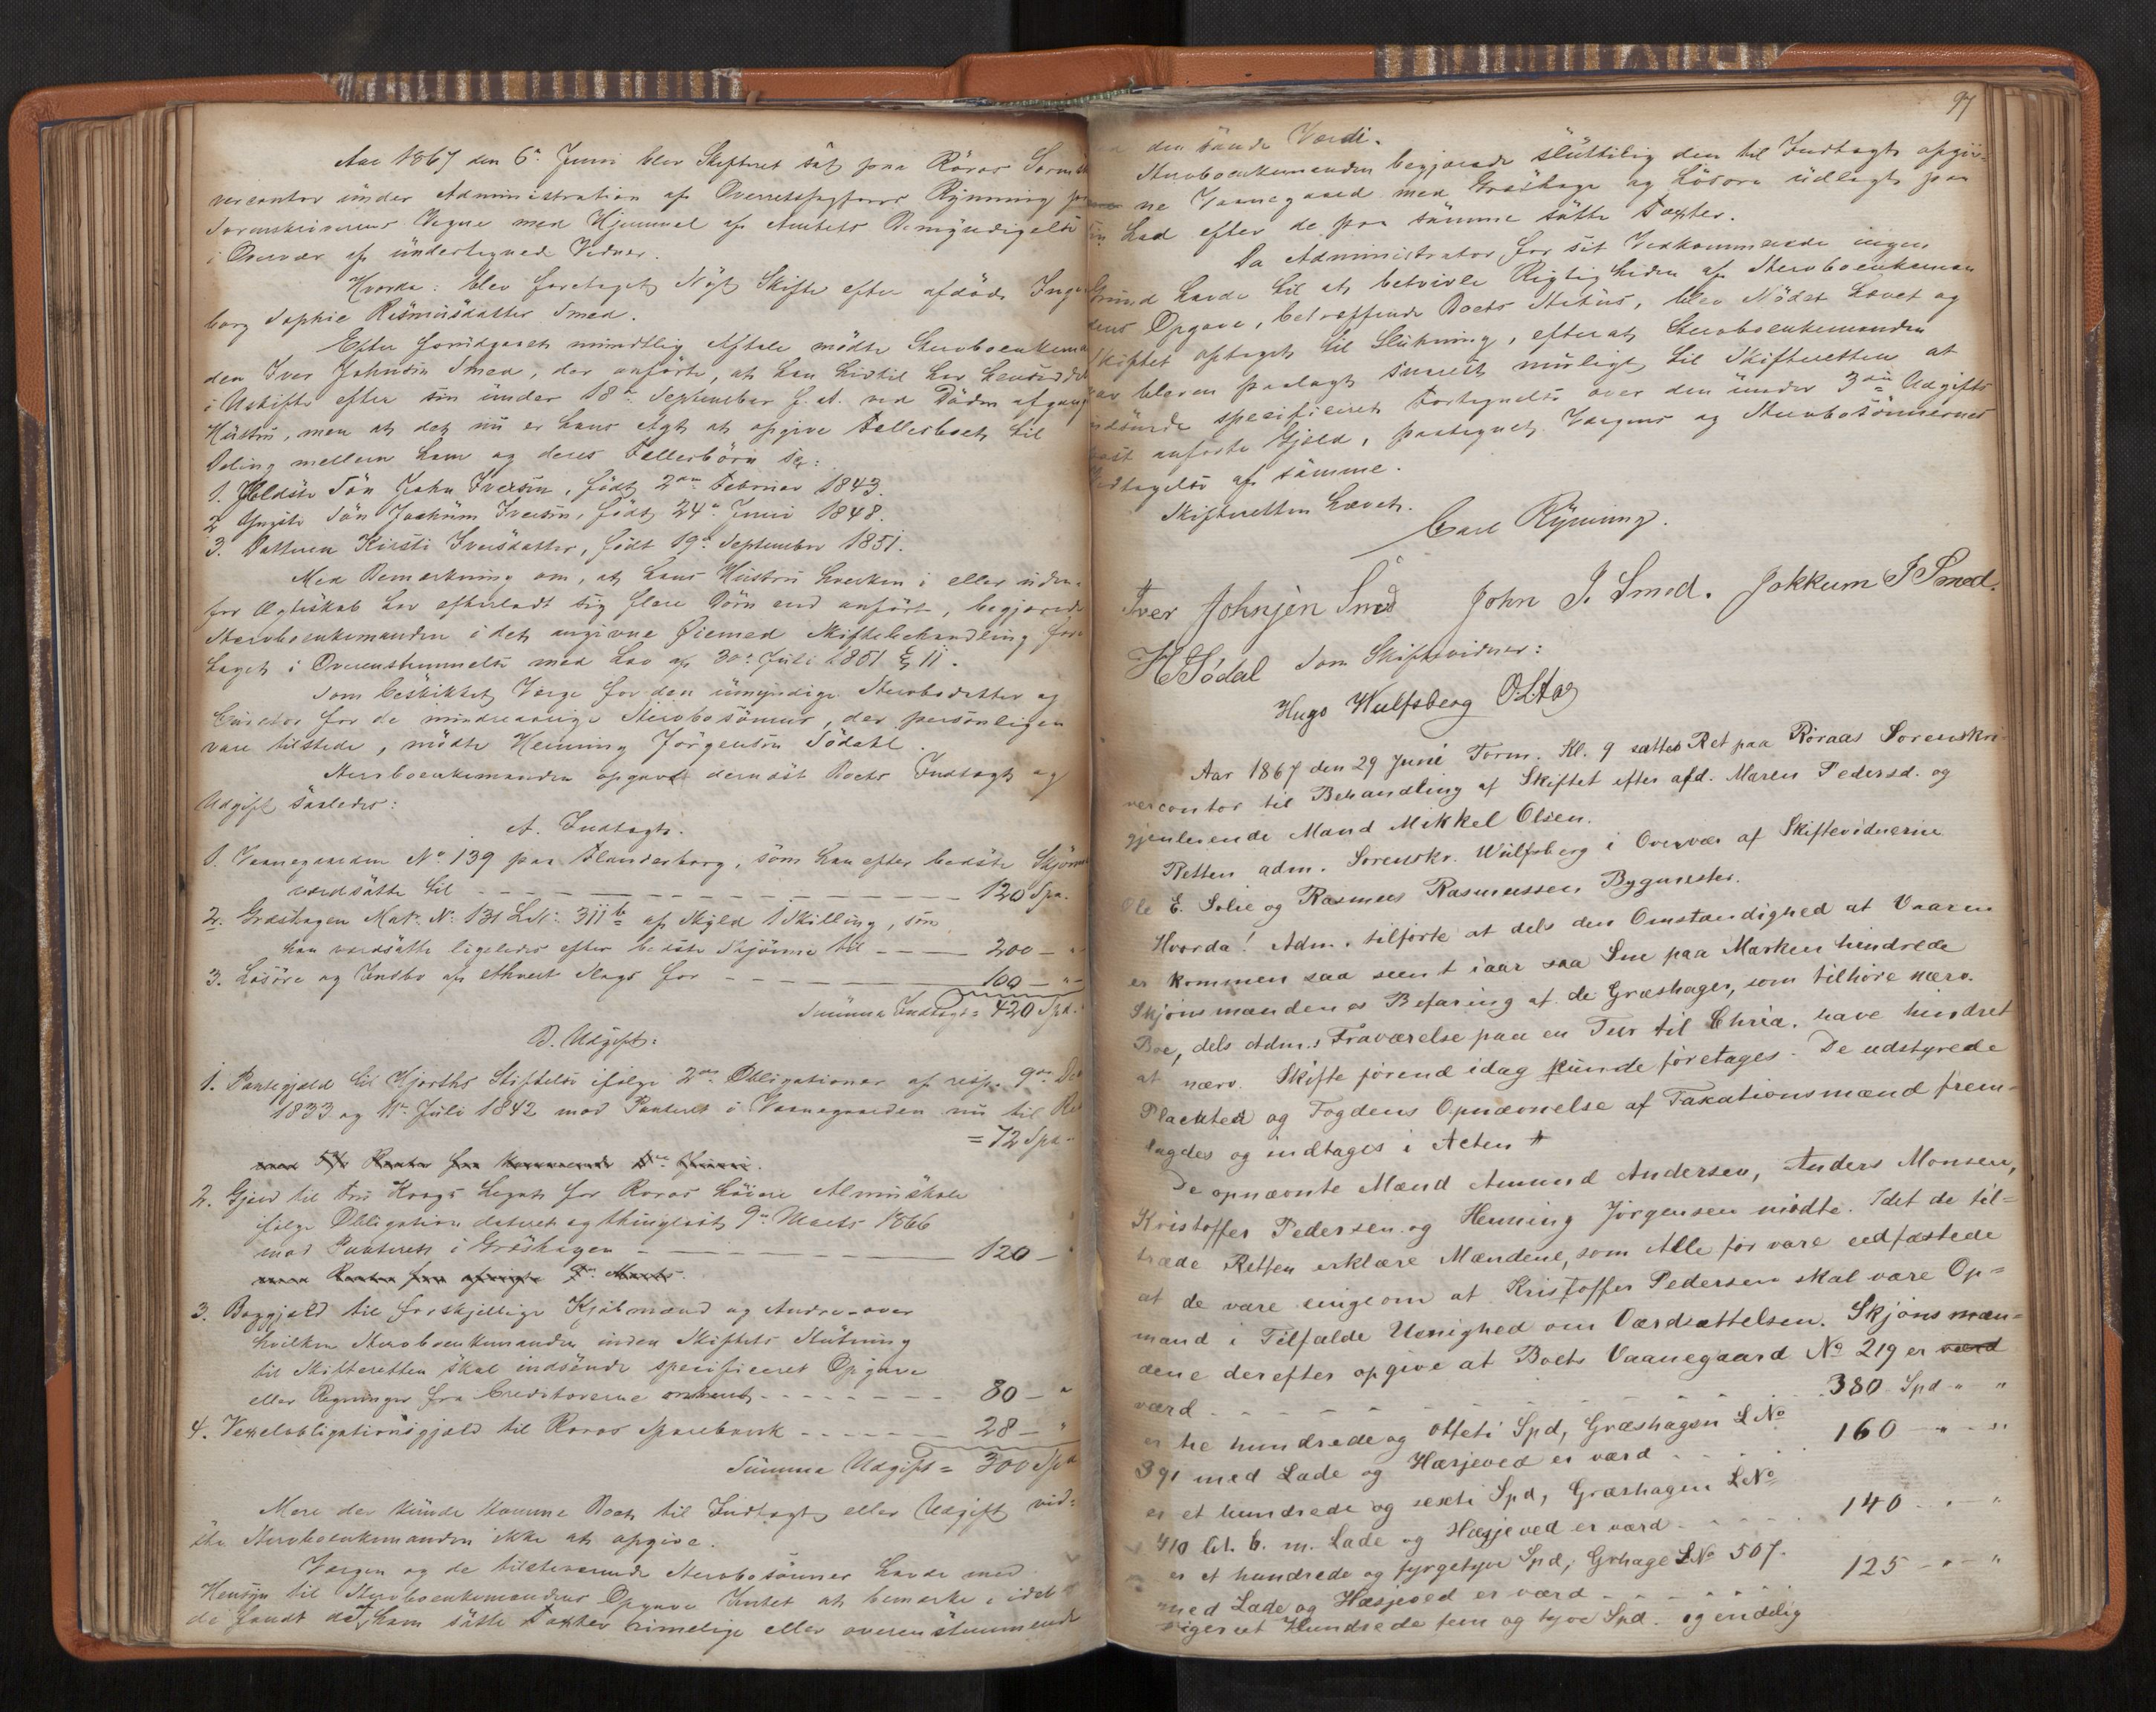 Aar 1867 den 6te Juni blev Skifteret sat paa Röros Sorenskri
vercontor under Administration af Overretssagfører Rynning paa
Sorenskriverens Vegne med Hjemmel af Amtets Bemyndigelse
i Overvær af undertegnede Vidner.
Hvorda: blev foretaget Nyt Skifte efter afdöde Inge
borg Sophie Rasmusdatter Smed.
Efter foregaaet mundtlig Aftale mödte Sterboenkeman
den Iver Johnsen Smed, der anförte, at han hidtil har hensiddet
i Uskifte efter sin under 18de September f. A. ved Döden afgang
Hustru, men at det nu er hans Agt at opgive Fællesboet til
Deling mellem ham og deres Fællesbörn:
1. Ældste Sön John Iversen, födt 2den Februar 1843.
2 Yngste Sön Jochum Iversen, födt 24de Juni 1848.
3. Datteren Kirsti Iversdatter, födt 19de September 1851.
Med Bemærkning om, at hans Hustru hverken i eller uden-
for Ægteskab har efterladt sig flere Börn end anfört, begjærede
Sterboenkemanden i det angivne Øiemed Skiftebehandling fore
taget i Overensstemmelse med Lov af 30te Juli 1851 § 11.
Som beskikket Værge for den umyndige Sterbodatter og
Curator for de mindreaarige Sterbosönner, der personligen
vare tilstede, mödte Henning Jörgensen Södahl.
Sterboenkemanden opgav dernæst Boets Indtægt og
Udgift saaledes:
A. Indtægt.
1. Vaanegaarden No 139 paa Flanderborg, som han efter bedste Skjönn
værdsatte til 120 Spd.
2. Græshagen Mat. No 131 L.No 311b af Skyld 1 Skilling, som
han værdsatte ligeledes efter bedste Skjönne til 200 - "
3. Lösöre og Indbo af ethvert Slags for 100 - " -
Summa Indtægt = 420 Spd.
B. Udgift:
1. Pantegjæld til Hjorths Stiftelse ifölge 2de Obligationer af resp. 9de De
1833 og 11te Juli 1842 mod Panteret i Vaanegaarden nu til Re
= 72 Spd -
2. Gjæld til Fru Krags Legat for Röros höiere Almueskole
ifölge Obligation dateret og thinglæst 9de Marts 1866
mod Panteret i Græshagen 120 -
3. Boggjæld til forskjellige Kjöbmænd og Andre - over
hvilken Sterboenkemanden inden Skiftets Slutning
til Skifteretten skal indsende specificeret Opgave
eller Regninger fra Creditorerne omtrent 80 - "
4. Vexelobligationsgjæld til Röros Sparebank 28 - "
Summa Udgift = 300 Spd
Mere der kunde komme Boet til Indtægt eller Udgift vid-
ste Sterboenkemanden ikke at opgive.
Værgen og de tilstedeværende Sterbosönner havde med
Hensyn til Sterboenkemandens Opgave Intet at bemærke, idet
de fandt de af ham satte Taxter rimelige eller overensstemmende
97
den sande Værdi.
Sterboenkemanden begjærede sluttelig den til Indtægt opgiv-
ne Vaanegaard med Græshage og Lösöre udlagt paa
sin Lod efter de paa samme satte Taxter.
Da Administrator for sit Vedkommende ingen
Grund havde til at betvivle Rigtigheden af Sterboenkeman
dens Opgave, betræffende Boets Status, blev Mödet hævet og
Skiftet optaget til Slutning, efterat Sterboenkemanden
var bleven paalagt snarest muligt til Skifteretten at
indsende specificeret Fortegnelse over den under 3die Udgifts
post anförte Gjæld, paategnet Værgens og Sterbosönnernes
Vedtagelse af samme.
Skifteretten hævet.
Carl Rynning.
Iver Johnsen Smed John I. Smed. Jokkum I Smed.
H Södal Som Skiftevidner:
Hugo Wulfsberg O L Aas
Aar 1867 den 29 Juni Form. Kl. 9 sattes Ret paa Röraas Sorenskri-
vercontor til Behandling af Skiftet efter afd. Maren Pedersd. og
gjenlevende Mand Mikkel Olsen.
Retten adm. Sorenskr. Wulfsberg i Overvær af Skiftevidnerne
Ole E. Solie og Rasmus Rasmussen Bygmester.
Hvorda! Adm. tilförte at dels den Omstændighed at Vaaren
er kommen saa seent iaar saa Sne paa Marken hindrede
Skjönsmændenes Befaring af de Græshager, som tilhöre nærv.
Boe, dels Adm.s Fraværelse paa en Tur til Chria. have hindret
at nærv. Skifte förend idag kunde foretages. De udstyrede
Placater og Fogdens Opnævnelse af Taxationsmænd frem-
lagdes og indtages i Acten
De opnævnte Mænd Amund Andersen, Anders Monsen,
Kristoffer Pedersen og Henning Jörgensen mödte. Idet de til-
træde Retten erklære Mændene, som Alle för vare eedfæstede
at de være enige om at Kristoffer Pedersen skal være Op-
mand i Tilfælde Uenighed om Værdsættelsen. Skjönsmæn-
dene derefter opgive at Boets Vaanegaard No 219 er værd
værd 380 Spd " "
er tre hundrede og otteti Spd, Græshagen L No
391 med Lade og Hæsjeved er værd 160 - " - "
er et hundrede og sexti Spd, Græshagen L No
410 lit. b. m. Lade og Hæsjeved er værd 140 - " - "
er et hundrede og fyrgetyve Spd, Grhage L No 507.
med Lade og Hæsjeved er værd 125 - " - "
siger et Hundrede fem og tyve Spd. og endelig